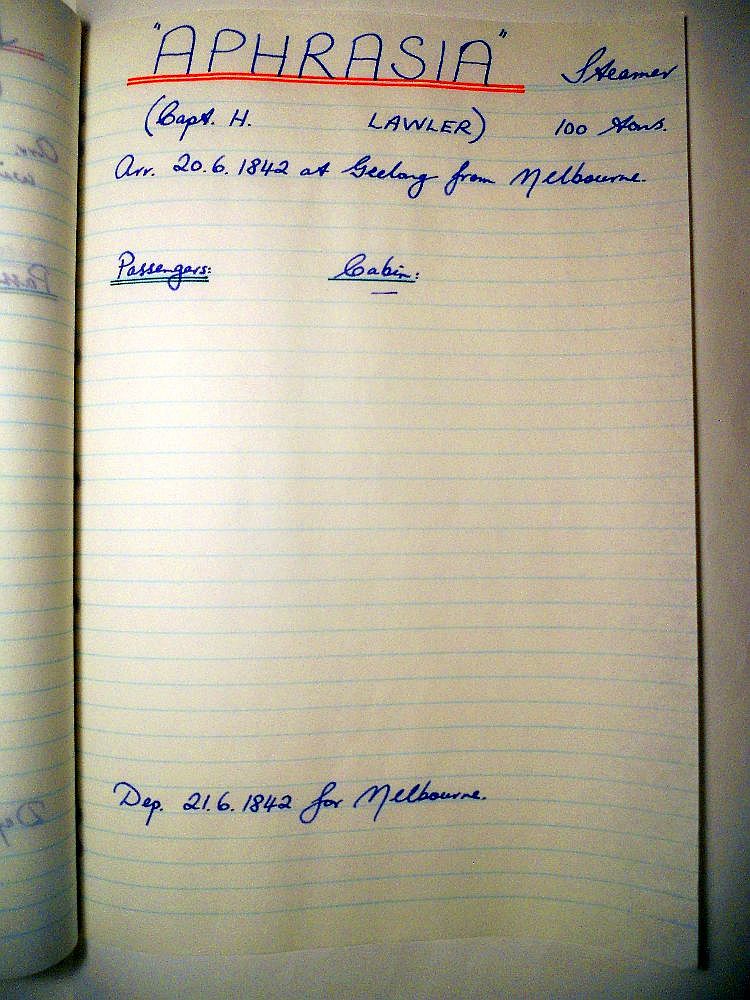 "APHRASIA" Steamer
(Capt. H. LAWLER) 100 tons.
Arr. 20.6.1842 at Geelong from Melbourne.
Passengers: Cabin:
Dep. 21.6.1842 for Melbourne.